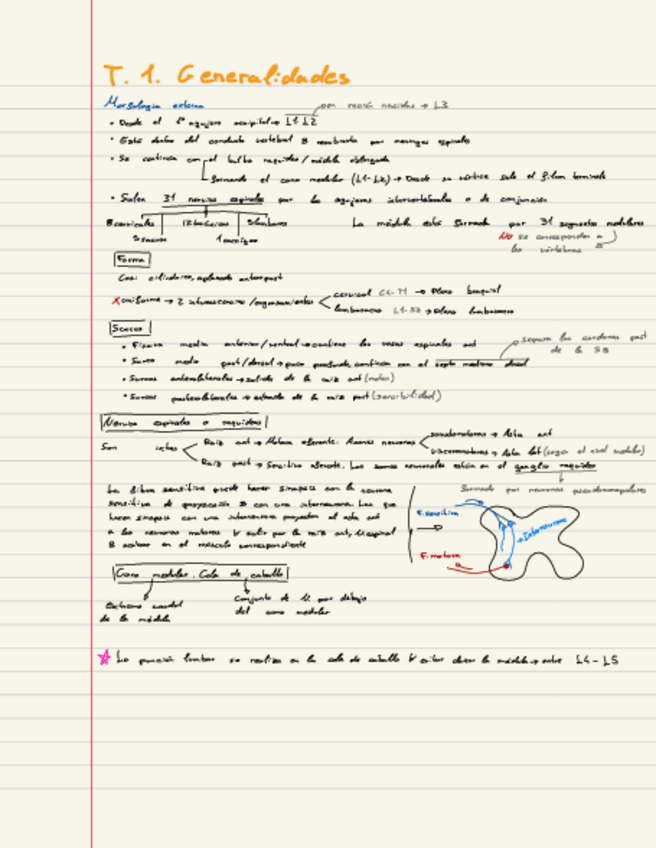 T. 1. Generalidades
Morfología externa
en recién nacidos → L3
• Desde el 1º agujero occipital → L1-L2
• Está dentro del conducto vertebral y recubierta por meninges espinales
• Se continúa con el bulbo raquídeo/médula oblongada
formando el cono medular (L1-L2) → Desde su vértice sale el filum terminale
• Salen 31 nervios espinales por los agujeros intervertebrales o de conjunción
8 cervicales 12 torácicos 5 lumbares
5 sacros 1 coccígeo
La médula está formada por 31 segmentos medulares
No se corresponden a
las vértebras
Forma
Casi cilíndrica, aplanada anteropost
X uniforme → 2
cervical → Plexo braquial
lumbosacro → Plexo lumbosacro
Surcos
• Fisura media anterior/ventral → contiene los vasos espinales ant
• Surco medio post/dorsal → poco profundo, continúa con el septo mediano dorsal
separa los cordones post
de la SB
• Surcos anterolaterales → salida de la raíz ant (motor)
• Surcos posterolaterales → entrada de la raíz post (sensibilidad)
Nervios espinales o raquídeos
Son mixtos
Raíz ant → Motora eferente. Axones neuronas
somatomotoras → Asta ant
visceromotoras → Asta lat (según el nivel medular)
Raíz post → Sensitiva aferente. Los somas neuronales están en el ganglio raquídeo
formado por neuronas pseudomonopolares
La fibra sensitiva puede hacer sinapsis con la neurona
sensitiva de proyección o con una interneurona. Las que
hacen sinapsis con una interneurona proyectan al asta ant
a las neuronas motoras y salir por la raíz ant, N. espinal
y acabar en el músculo correspondiente
F. sensitiva
Interneurona
F. motora
Cono medular. Cola de caballo
Extremo caudal
de la médula
Conjunto de N. por debajo
del cono medular
☆ La punción lumbar se realiza en la cola de caballo y evitar dañar la médula → entre L4-L5